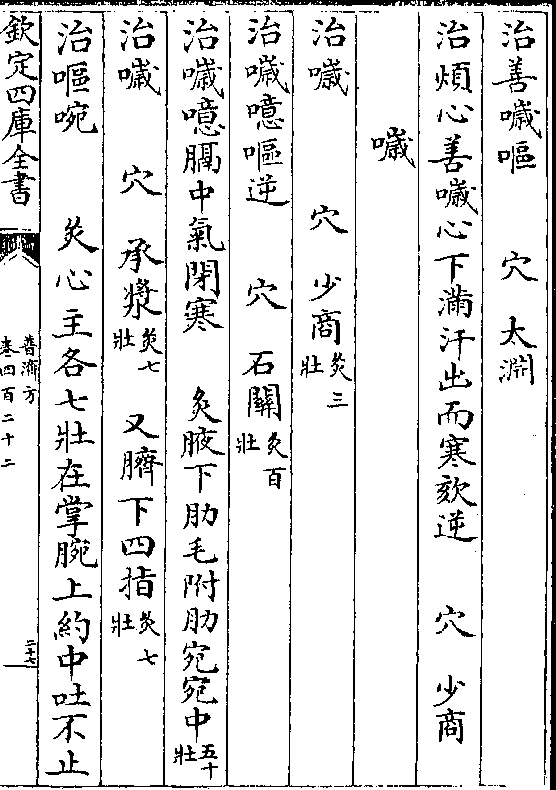 治善噦嘔　穴　太淵
治煩心善噦心下滿汗出而寒欬逆　穴　少商
噦
治噦　穴　少商灸三壯
治噦噫嘔逆　穴　石關灸百壯
治噦噫膈中氣閉寒　灸腋下肋毛附肋宛宛中五十壯
治噦　穴　承漿灸七壯　又臍下四指灸七壯
治嘔啘　灸心主各七壯在掌腕上約中吐不止
欽定四庫全書　普濟方　卷四百二十二　二十七